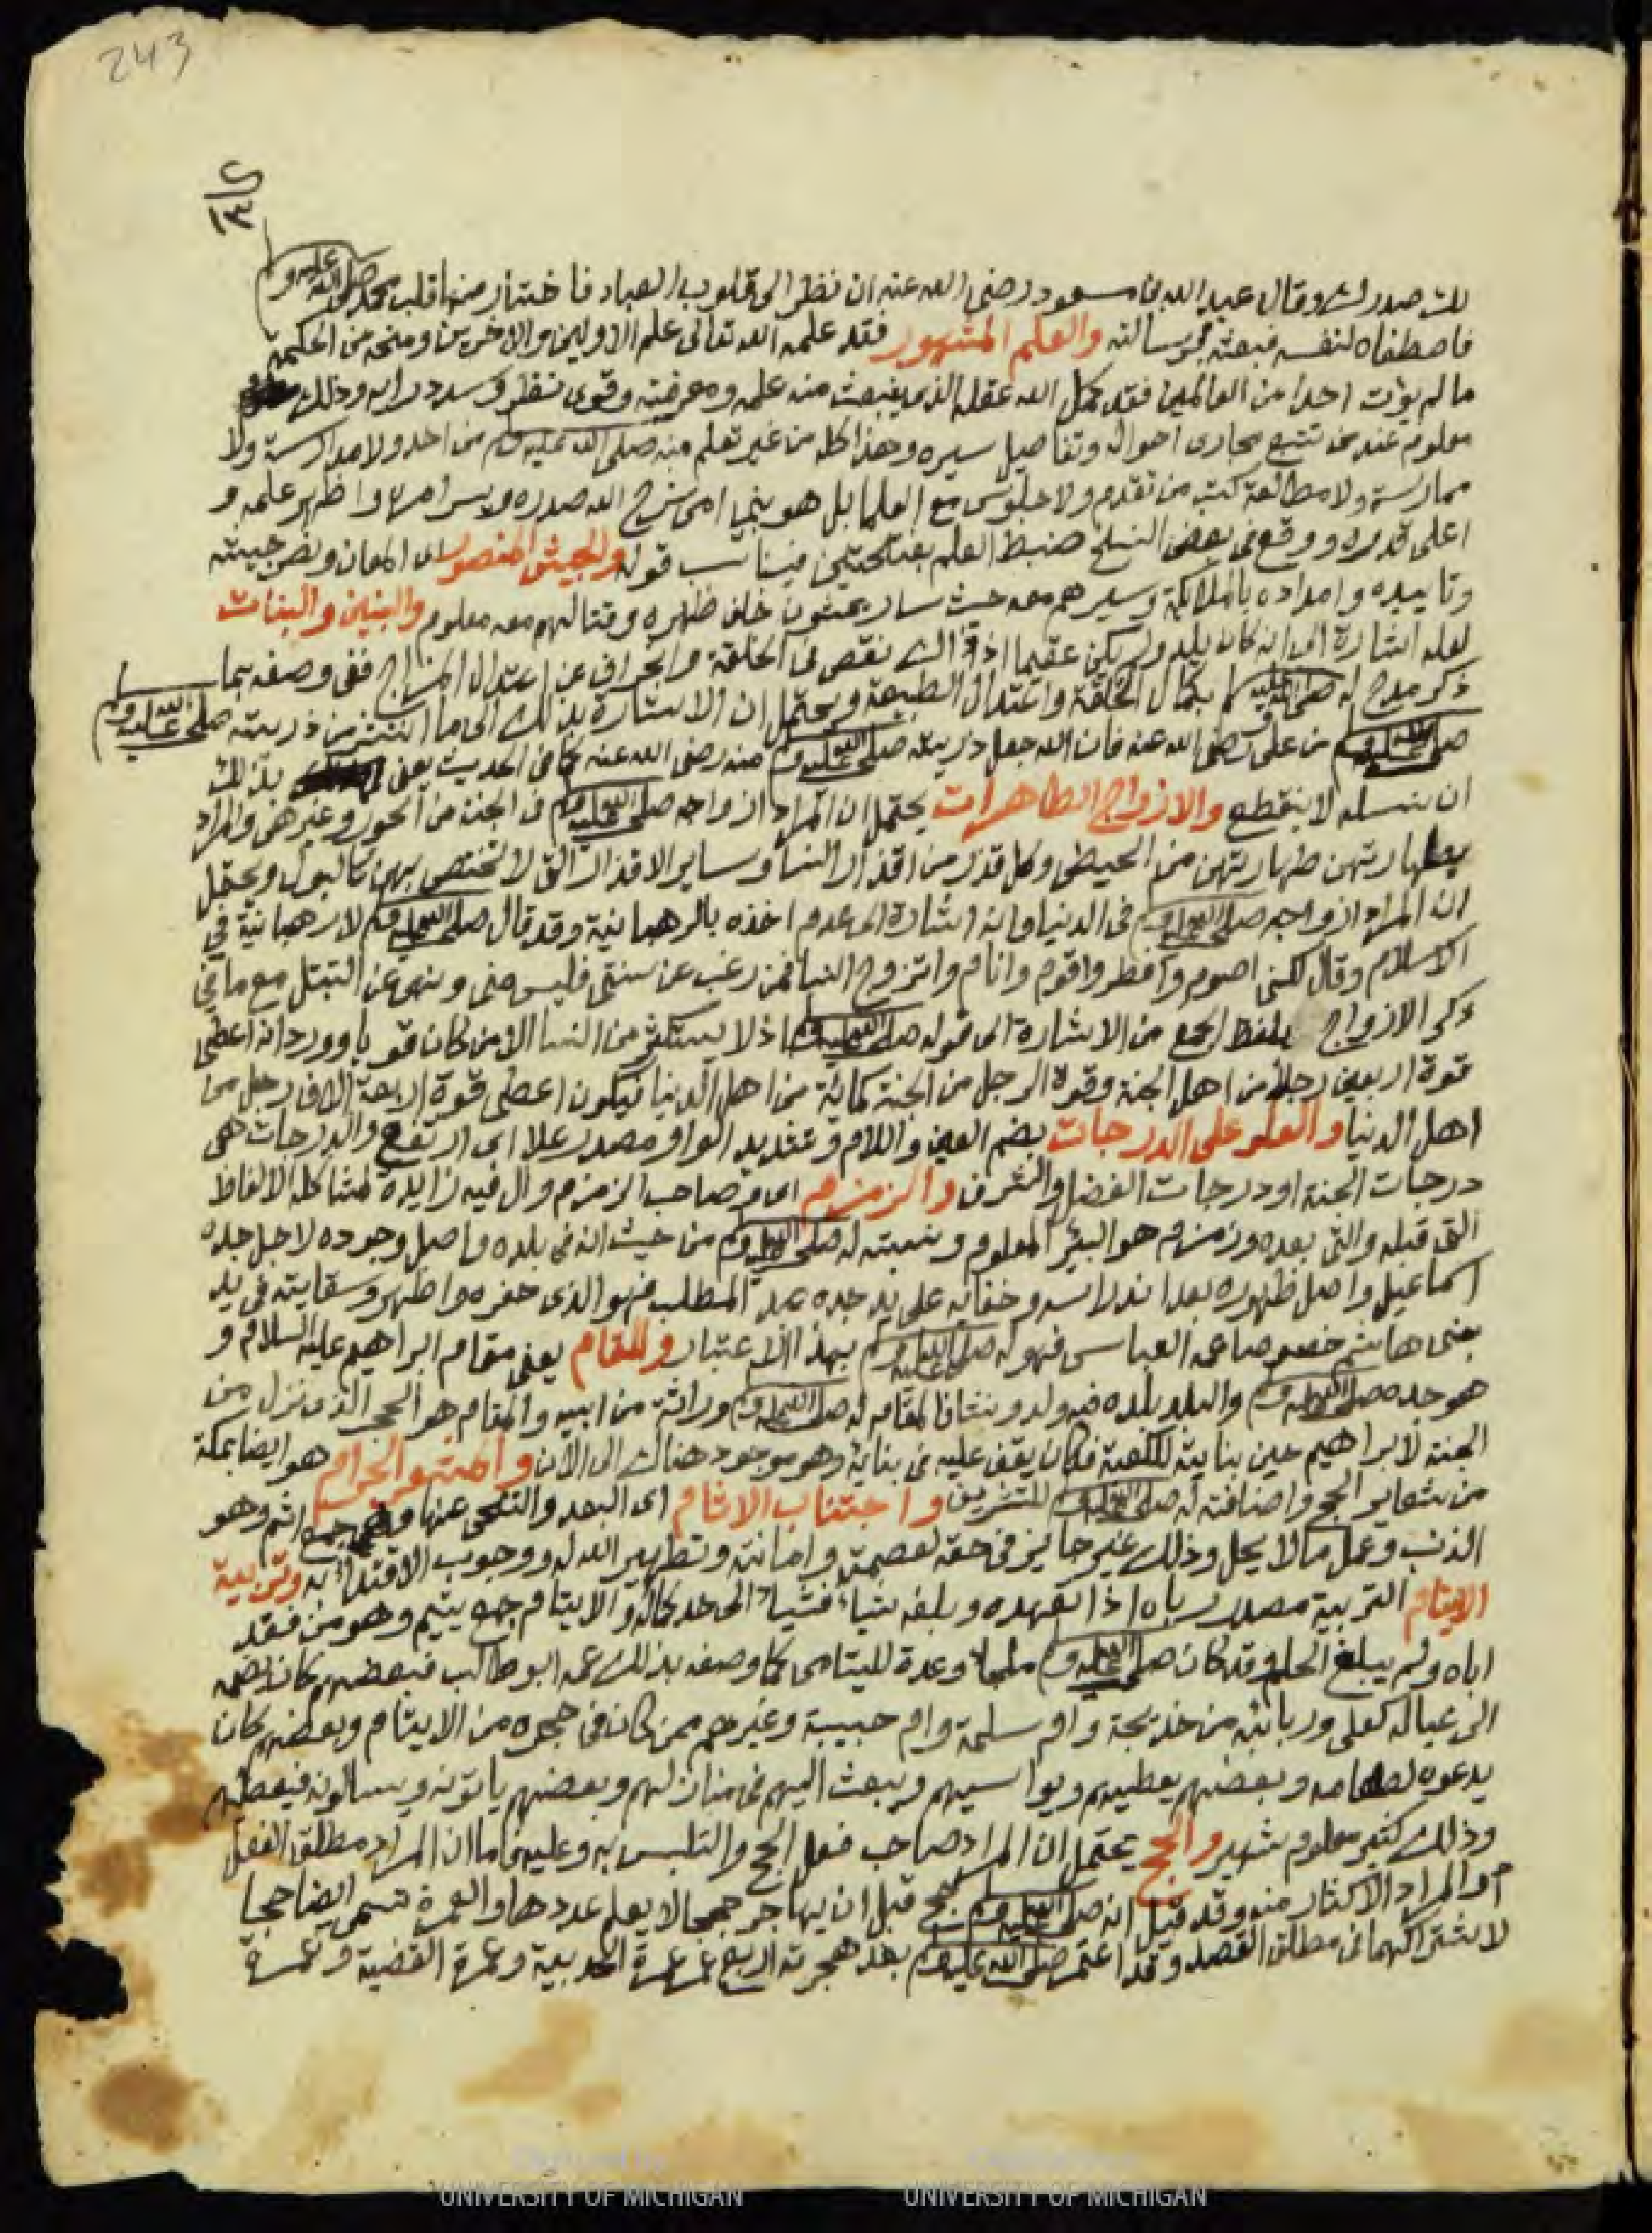 243
لك صدرك وقال عبد الله بن مسعود رضي الله عنه ان نظر الى قلوب العباد فاختار منها قلب محمد صلى الله عليه و
فاصطفاه لنفسه فبعثه برسالته والعلم المشهور فقد علمه الله تعالى علم الاولين والاخرين ومنحه من الحكمة
ما لم يؤت احدا من العالمين فقد كمل الله عقله الذي ينبعث منه علمه ومعرفته وقوى نظره وسدد رايه وذلك
معلوم عند من تتبع مجارى احواله وتفاصيل سيره وهذا كله من غير تعلم منه صلى الله عليه وم من احد ولا مدارسة ولا
ممارسة ولا مطالعة كتب من تقدم ولا جلوس مع العلما بل هو نبي امي شرح الله صدره ويسر امره واظهر علمه و
اعلى قدره ووقع في بعض النسخ ضبط العلم بفتحتين فيناسب قوله والجيش المنصور اى المعان ونصر جيشه
وتاييده وامداده بالملائكة وسيرهم معه حيث سار يمشون خلف ظهره وقتالهم معه معلوم والبنين والبنات
لعله اشارة الى انه كان يلد ولم يكن عقيما اذ ذالك نقص في الخلقة وانحراف عن اعتدال المزاج ففى وصفه بما
ذكر مدح له صلى الله عليه وم بكمال الخلقة واعتدال الطبيعة ويحتمل ان الاشارة بذلك الى ما انتشر من ذريته صلى الله عليه وم
صلى الله عليه وم من على رضي الله عنه فان الله جعل ذريته صلى الله عليه وم منه رضي الله عنه كما فى الحديث يعنى بذلك
ان نسله لا ينقطع والازواج الطاهرات يحتمل ان المراد ازواجه صلى الله عليه وم فى الجنة من الحور وغيرهن والمراد
بطهارتهن طهارتهن من الحيض وكل قذر من اقذار النسا وساير الاقذار التى لا تختص بهن كالبول ويحتمل
ان المراد ازواجه صلى الله عليه وم فى الدنيا وانه اشارة الى عدم اخذه بالرهبانية وقد قال صلى الله عليه وم لا رهبانية في
الاسلام وقال لكنى اصوم وافطر واقوم وانام واتزوج النسا فمن رغب عن سنتي فليس منى ونهى عن التبتل مع ما في
ذكر الازواج بلفظ الجمع من الاشارة الى قوله صلى الله عليه وم اذ لا يستكثر من النسا الا من كان قويا وورد انه اعطى
قوة اربعين رجلا من اهل الجنة وقوة الرجل من الجنة كمائة من اهل الدنيا فيكون اعطى قوة اربعة الاف رجل من
اهل الدنيا والعلو على الدرجات بضم العين واللام وتشديد الواو مصدر علا اى ارتفع والدرجات هى
درجات الجنة او درجات الفضل والشرف والزمزم اى وصاحب الزمزم وال فيه زايدة لمشاكلة الالفاظ
التى قبله والتى بعده وزمزم هو البئر المعلوم ونسبته له صلى الله عليه وم من حيث انه فى بلده واصل وجوده لاجل جده
اسماعيل واصل ظهوره بعد اندراسه وخفايه على يد جده عبد المطلب فهو الذى حفره واظهره وسقايته فى يد
بنى هاشم خصوصا عمه العباس فهو له صلى الله عليه وم بهذا الاعتبار والمقام يعنى مقام ابراهيم عليه السلام و
هو جده صلى الله عليه وم والبلد بلده فيه ولد ونشا فالمقام له صلى الله عليه وم وراثة من ابيه والمقام هو الحجر الذى نزل من
الجنة لابراهيم حين بنايه للكعبة فكان يقف عليه فى بنائه وهو موجود هناك الى الان والمشعر الحرام هو ايضا بمكة
من شعاير الحج واضافته له صلى الله عليه وم للتشريف واجتناب الاثام اى البعد والتنحى عنها وهى جمع اثم وهو
الذنب وعمل ما لا يحل وذلك غير جايز فى حقه لعصمته وامانته وتطهير الله له ووجوب الاقتداء به وتربية
الايتام التربية مصدر رباه اذا تعهده وبلغه شياء فشيا الى حد كماله والايتام جمع يتيم وهو من فقد
اباه ولم يبلغ الحلم وقد كان صلى الله عليه وم ملجا وعدة لليتامى كما وصفه بذلك عمه ابو طالب فبعضهم كان يضمه
الى عياله كعلى وربائبه من خديجة وام سلمة وام حبيبة وغيرهم ممن كان فى حجره من الايتام وبعضهم كان
يدعوه لطعامه وبعضهم يعطيهم ويواسيهم ويبعث اليهم فى منازلهم وبعضهم ياتونه ويسالونه فيعطيهم
وذلك كثير معلوم شهير والحج يحتمل ان المراد صاحب فعل الحج والتلبس به وعليه فاما ان المراد مطلق الفعل
او المراد الاكثار منه وقد قيل انه صلى الله عليه وم حج قبل ان يهاجر حججا لا يعلم عددها والعمرة تسمى ايضا حجا
لاشتراكهما فى مطلق القصد وقد اعتمر صلى الله عليه وم بعد هجرته اربع عمر عمرة الحديبية وعمرة القضية وعمرة
UNIVERSITY OF MICHIGAN
UNIVERSITY OF MICHIGAN